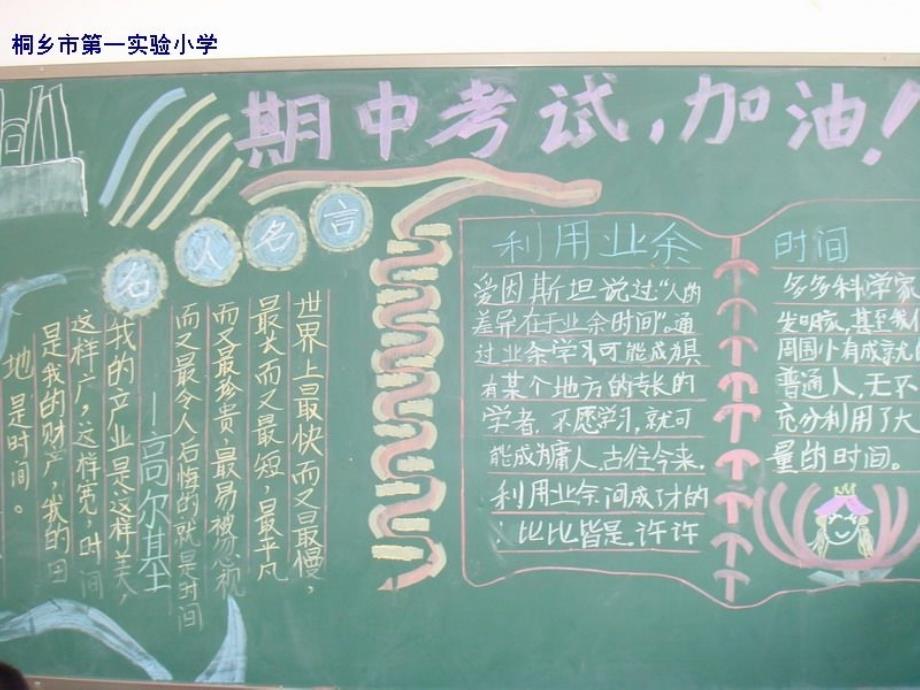 桐乡市第一实验小学
期中考试,加油!
名人名言
世界上最快而又最慢,
最长而又最短,最平凡
而又最珍贵,最易被忽视
而又最令人后悔的就是时间
—高尔基
我的产业是这样美,
这样广,这样宽,时间
是我的财产,我的田
地是时间。
利用业余
时间
爱因斯坦说过:“人的
差异在于业余时间”。通
过业余学习,可能成为具
有某个地方的专长的
学者,不愿学习,就可
能成为庸人,古往今来,
利用业余间成了才的
比比皆是,许许
多多科学家
发明家,甚至我们
周围小有成就的
普通人,无不
充分利用了大
量的时间。